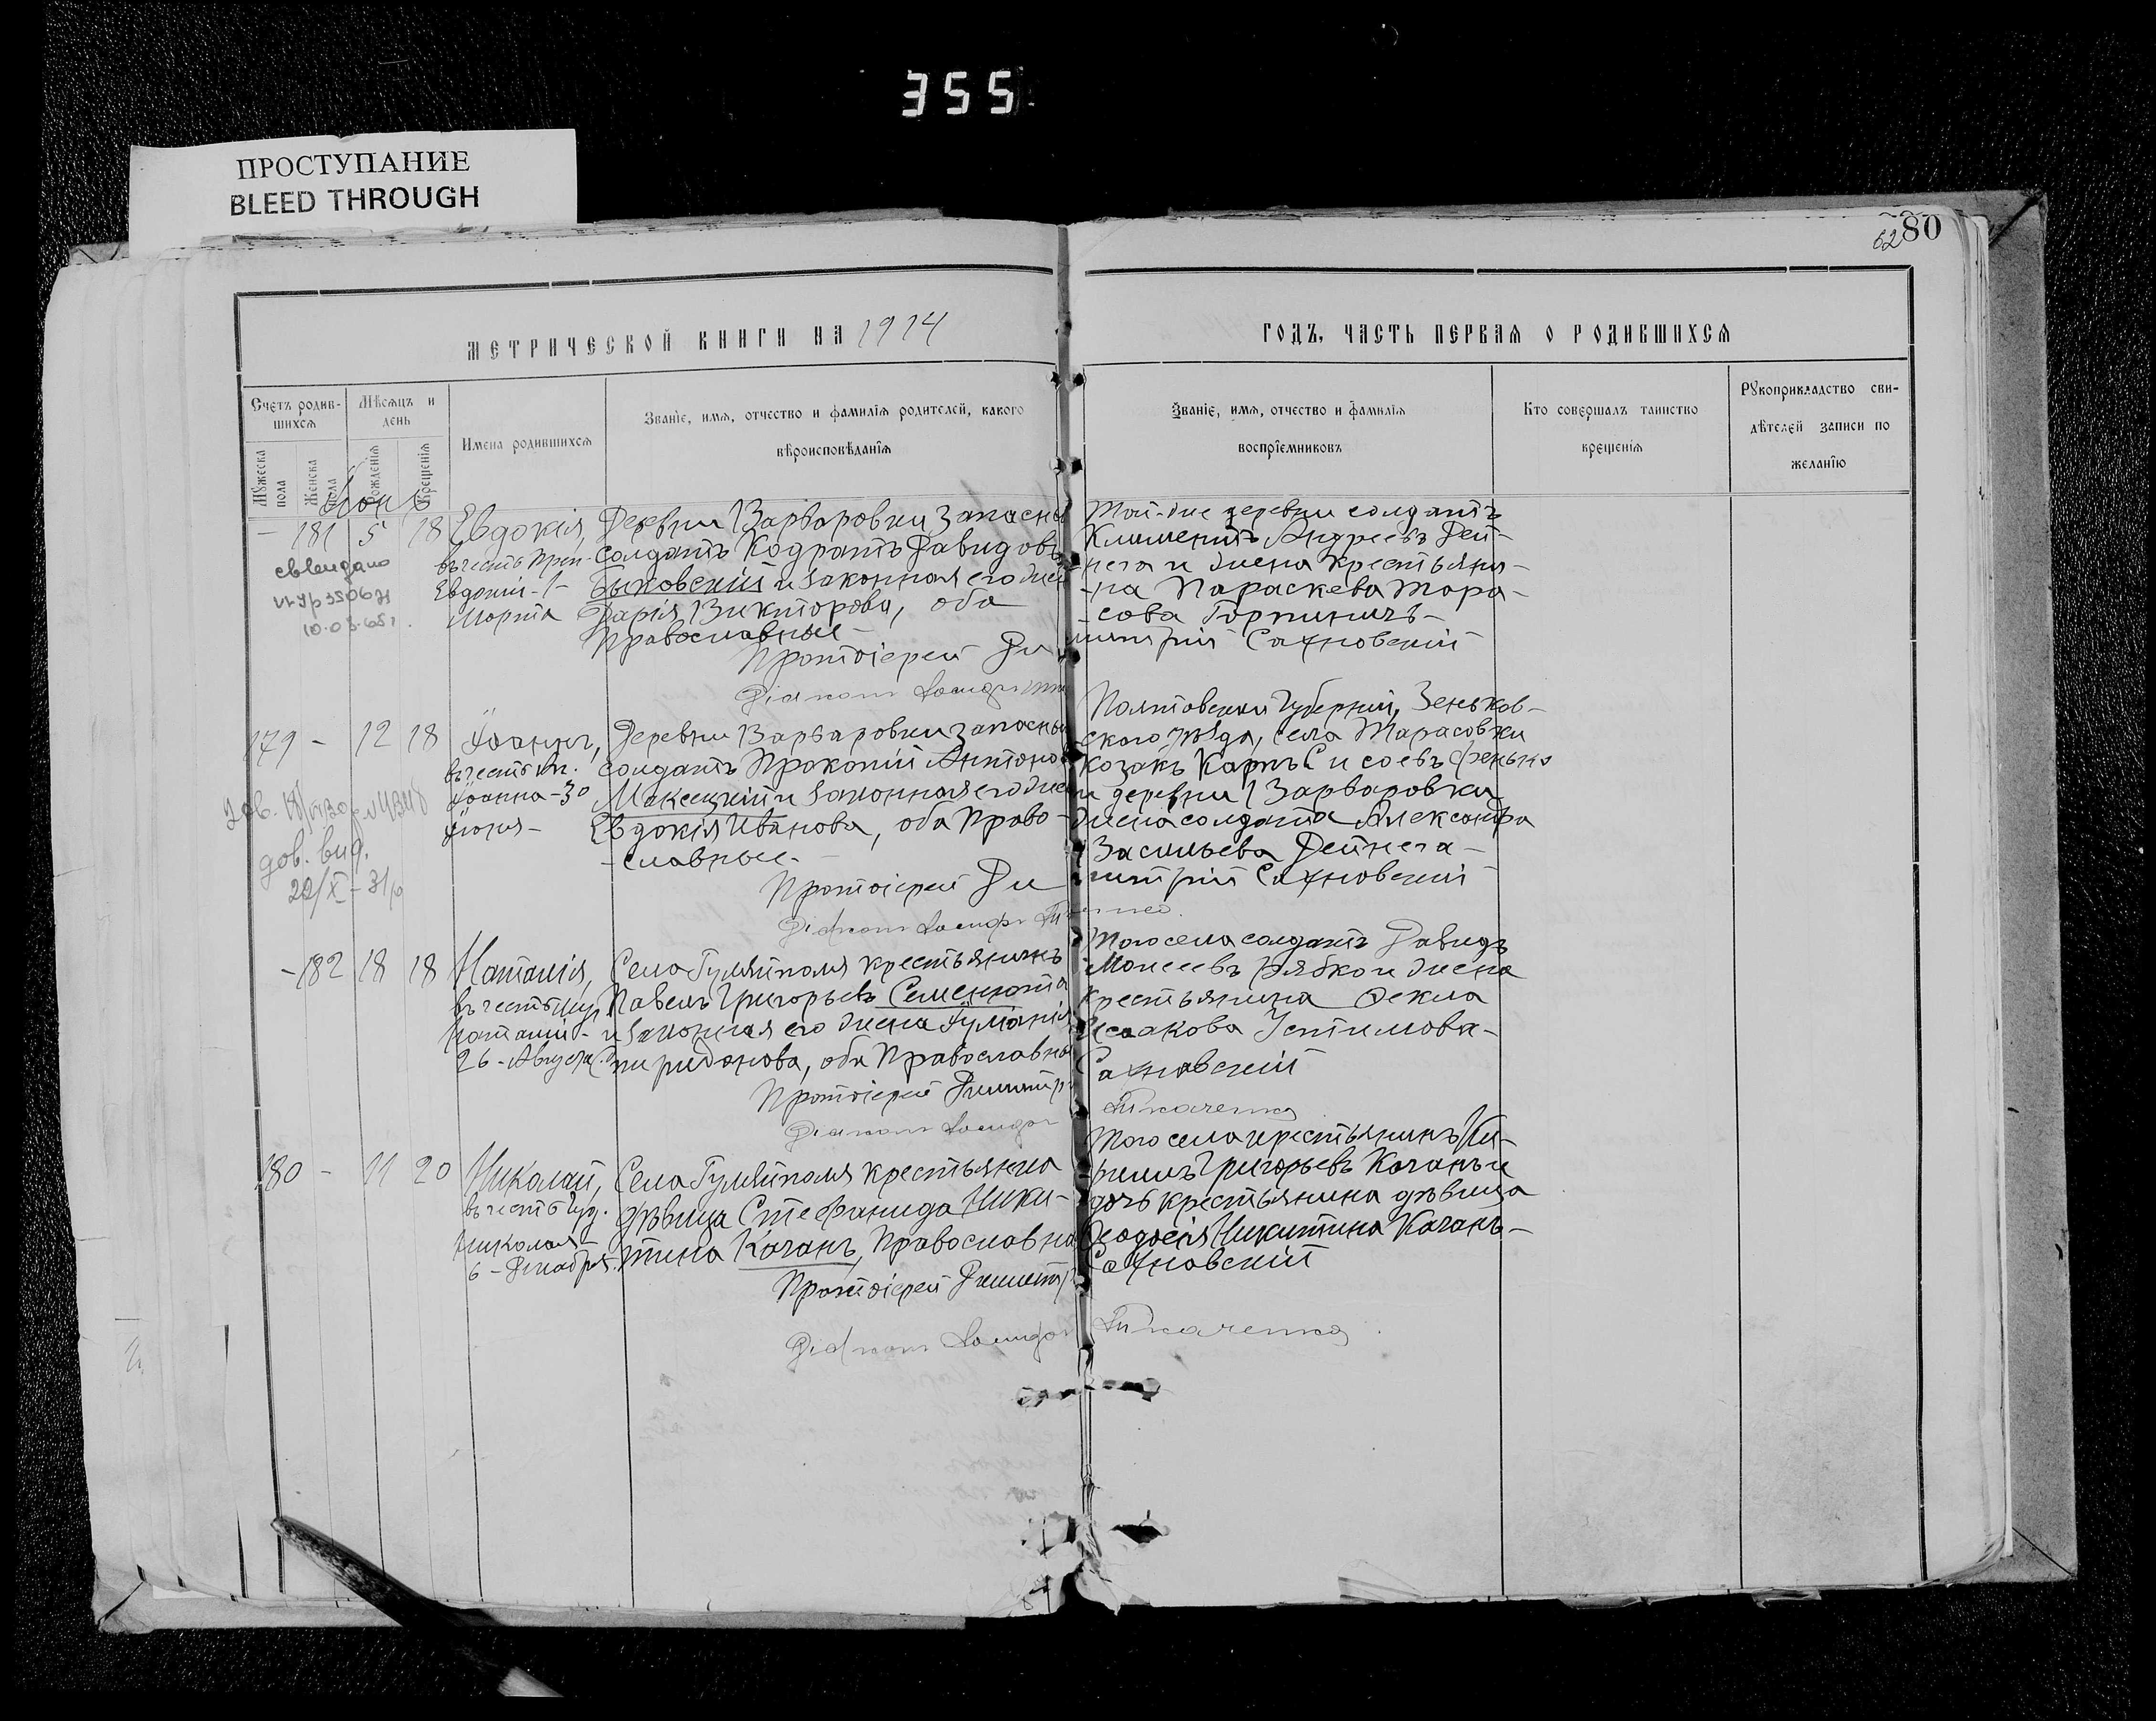 355
ПРОСТУПАНИЕ
BLEED THROUGH
62 80
МЕТРИЧЕСКОЙ КНИГИ НА 1914
ГОДЪ, ЧАСТЬ ПЕРВАЯ О РОДИВШИХСЯ
Счетъ родив-
шихся
Мѣсяцъ и
день
Мужеска пола
Женска пола
Рожденія
Крещенія
Имена родившихся
Званіе, имя, отчество и фамилія родителей, какого
вѣроисповѣданія
Званіе, имя, отчество и фамилія
воспріемниковъ
Кто совершалъ таинство
крещенія
Рукоприкладство сви-
дѣтелей записи по
желанію
– 181 5 18 Евдокія,
въ честь Преп.
Евдокіи - 1 -
Марта
10.03.65 г.
Деревни Варваровки запасный
солдатъ Кодратъ Давидовъ
Быковскій и законная его жена
Дарія Викторова, оба
Православные –
Той-же деревни солдатъ
Климентъ Андреевъ Дей-
нега и жена крестьяни-
на Параскева Тара-
сова Горпиничъ –
Протоіерей Димитрій Сахновскій
Діаконъ
179 – 12 18 Іоаннъ,
въ честь
Іоанна - 30
Іюля –
дов. вид.
22/X – 31 р
Деревни Варваровки запасный
солдатъ Прокопій Антоновъ
и законная его жена
Евдокія Иванова, оба Право-
славные –
Полтавской губерніи, Зеньков-
скаго уѣзда, села Тарасовки
козакъ Карпъ
и деревни Варваровки
жена солдата Александра
Васильева Дейнега –
Протоіерей Димитрій Сахновскій
Діаконъ
– 182 18 18 Наталія,
въ честь муч.
Наталіи –
26 - Августа
Села Гуляйполя крестьянинъ
Павелъ Григорьевъ Семенюта
и законная его жена Іуліанія
Спиридонова, оба Православные
Того села солдатъ Давидъ
Моисеевъ Рябко и жена
крестьянина Ѳекла
Исаакова Устимова –
Протоіерей Димитрій Сахновскій
Діаконъ Ткаченко
180 – 11 20 Николай,
въ честь чуд.
Николая –
6 - Декабря.
Села Гуляйполя крестьянка
дѣвица Стефанида Ники-
тина Качанъ, Православная
Того села крестьянинъ Ки-
риллъ Григорьевъ Качанъ и
дочь крестьянина дѣвица
Ѳеодосія Никитина Качанъ –
Протоіерей Димитрій Сахновскій
Діаконъ Ткаченко